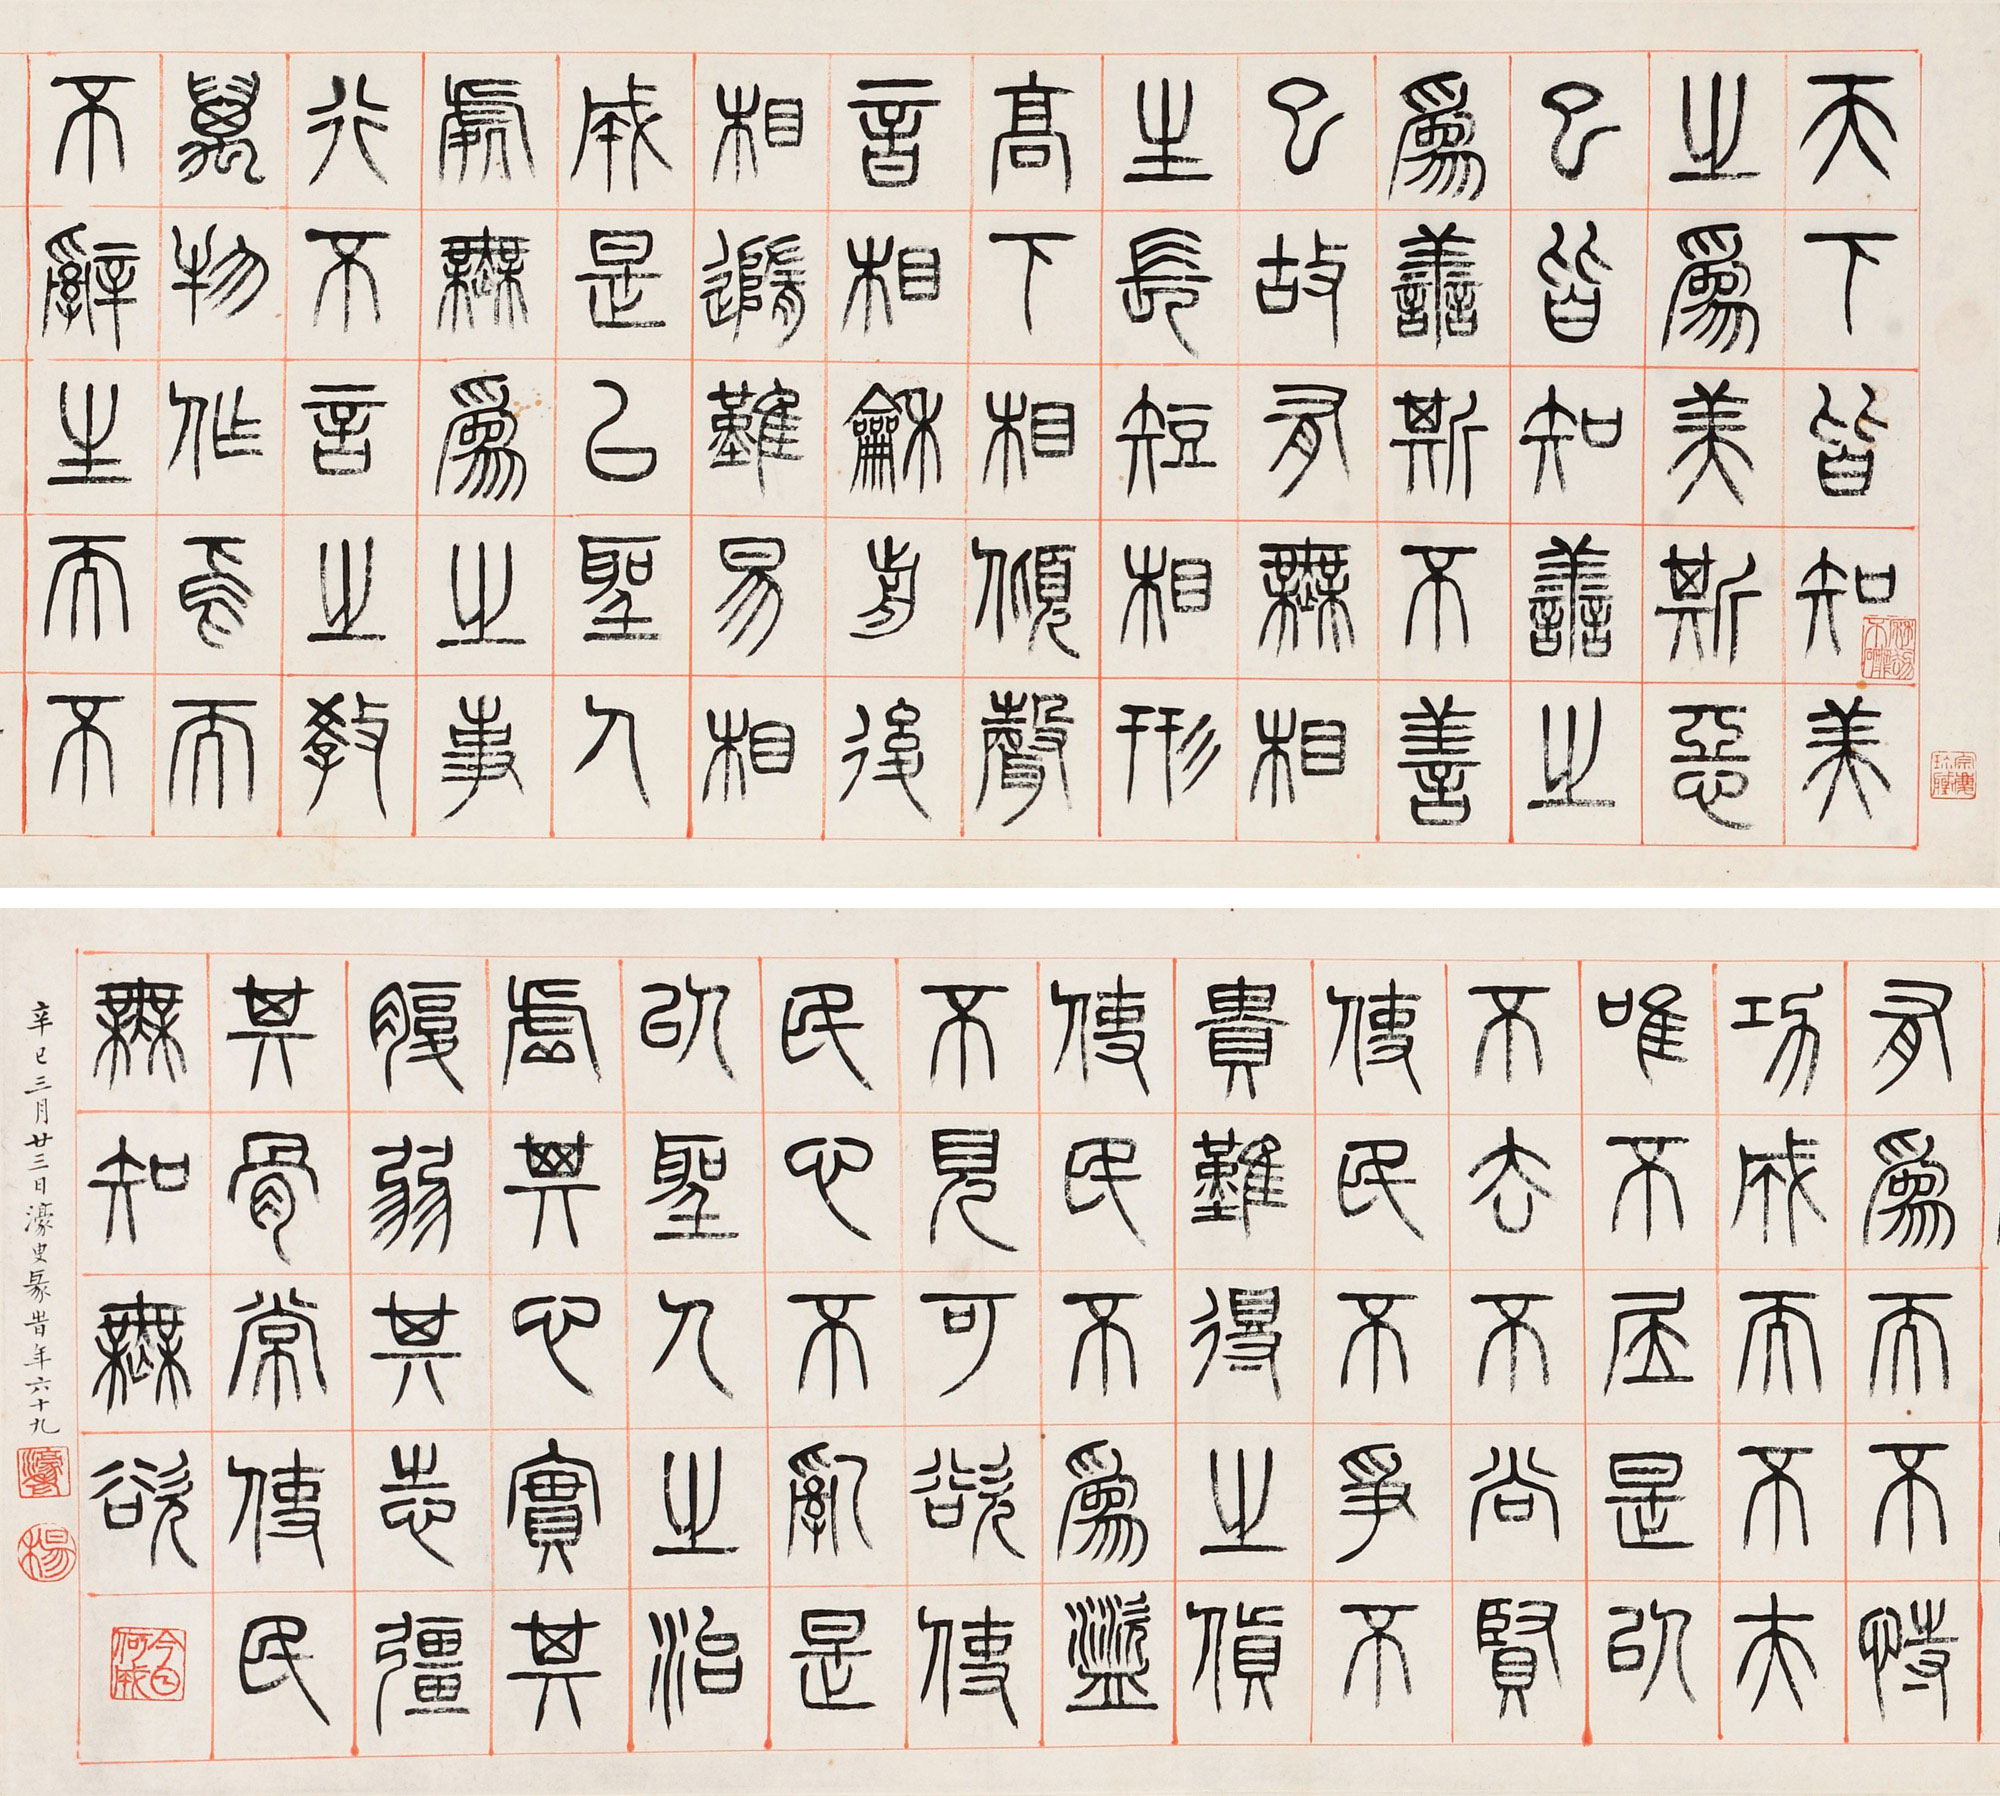 天下皆知美
之爲美斯惡
已皆知善之
爲善斯不善
已故有無相
生長短相形
高下相傾聲
音相龢前後
相隨難易相
成是以聖人
處無爲之事
行不言之教
萬物作焉而
不辭生而不
有爲而不恃
功成而不夫
唯不居是以
不去不尚賢
使民不爭不
貴難得之貨
使民不爲盜
不見可欲使
民心不亂是
以聖人之治
虛其心實其
腹弱其志彊
其骨常使民
無知無欲
辛巳三月廿三日濠叟篆旹年六十九
濠叟
楊